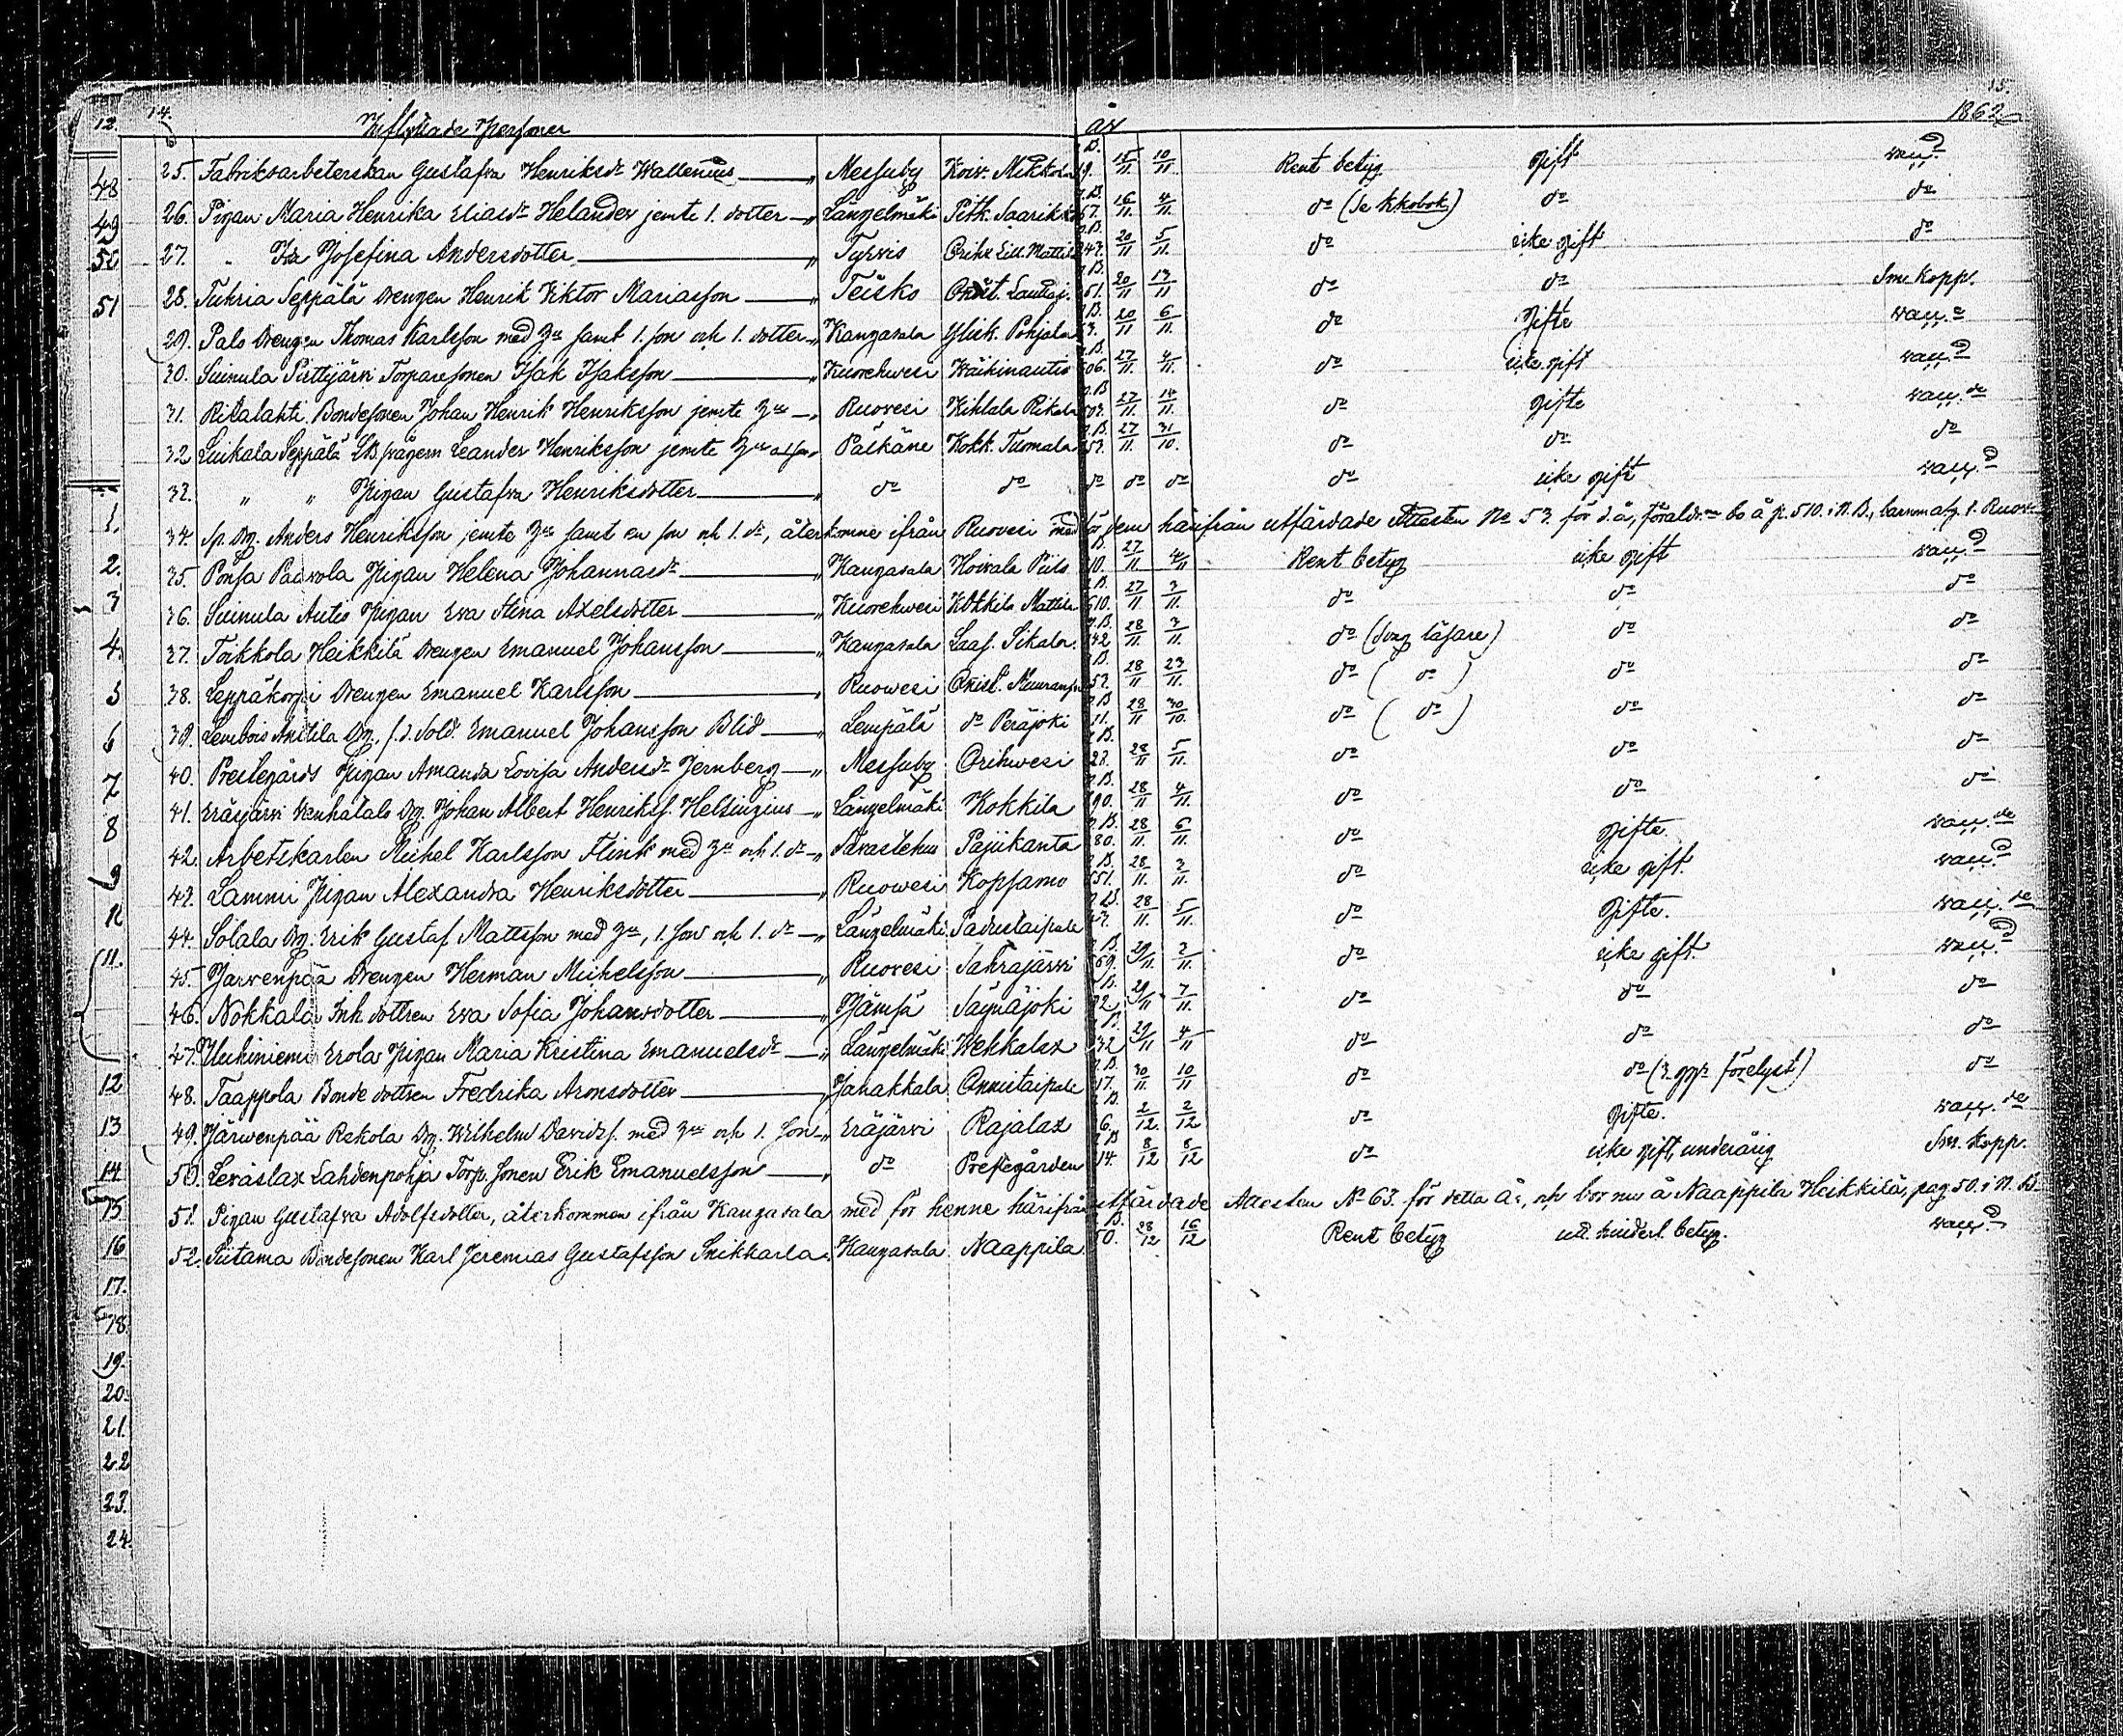 12. 14. Inflyttade Personer år 1862 15.
25. Fabriksarbeterskan Gustafva Henriksdr Wallenius „ Messuby Koiv. Mikkola 19. 15/11. 10/11. Rent betyg gift
26. Pigan Maria Henrika Eliasdr Helander jemte 1. dotter „ Längelmäki Pitk. Saarik 57. 16/11. 4/11. do (se kkobok) do do
27. „ Ida Josefina Andersdotter „ Tyrvis Orihv. Lill. Mattil 247. 20/11 5/11. do icke gift do
28. Seppälä Drengen Henrik Viktor Mariasson „ Teisko 51. 20/11 13/11 do do Sm. Kopp.
29. Palo Drengen Thomas Karlsson med samt 1. son och 1. dotter „ Kangasala Yliek. Pohjala 3. 20/11 6/11. do Gifte
30. Suinula Pirttijärvi Torparesonen Isak Isaksson „ Kuorehvesi Wäihinautio 506. 27/11. 4/11. do icke gift
31. Ritalahti Bondesonen Johan Henrik Henriksson jemte „ Ruovesi Kihlala Rikala 27/11. 14/11. do gifte
32. Liikala Seppälä Leander Henriksson jemte „ Pälkäne Kokk. Tuomala 53. 27/11. 31/10. do do do
33. „ „ Pigan Gustafva Henriksdotter „ do do do do do do icke gift
34. Sp. Dg. Anders Henriksson jemte samt en son och 1. dr, återkomne ifrån Ruovesi med för dem härifrån utfärdade Attesten No 53. för d. å., bo å p. 510. i N.B.,
35. Ponsa Paavola Pigan Helena Johannasdr „ Kangasala Koivala Piilo 10. 27/11 4/11 Rent betyg icke gift
36. Suinula Autio Pigan Eva Stina Axelsdotter „ Kuorehwesi Kokkila Mattila 510. 27/11 3/11. do do do
37. Toikkola Heikkilä Drengen Emanuel Johansson „ Kangasala Laas. Sikala. 142 28/11 3/11. do (svag läsare) do do
38. Leppäkorpi Drengen Emanuel Karlsson „ Ruowesi 52. 28/11 23/11. do ( do ) do do
39. Lembois Anttila Dg. f.d. Sold. Emanuel Johansson Blid „ Lempälä do Peräjoki 11. 28/11 30/10. do ( do ) do do
40. Prestegårds Pigan Amanda Lovisa Andersdr Jernberg „ Messuby Orihwesi 28. 28/11 5/11. do do do
41. Eräjärvi Wenhätalo Dg. Johan Albert Henrikss. Helsingius „ Längelmäki Kokkila 190. 28/11 4/11. do do do
42. Arbetskarlen Michel Karlsson Flink med och 1. dr „ Tavastehus Pajukanta 80. 28/11. 6/11. do Gifte.
43. Lammi Pigan Alexandra Henriksdotter „ Ruowesi Kopsamo 551. 28/11. 3/11. do icke gift.
44. Solala Dg. Erik Gustaf Mattsson med 1. son och 1. dr „ Längelmäki Padustaipale 43. 28/11. 5/11. do Gifte.
45. Jarvenpää Drengen Herman Michelsson „ Ruovesi Sahrajärvi 569. 29/11. 2/11. do icke gift.
46. Nokkala Inh. dottren Eva Sofia Johansdotter „ Jämsä Säynäjoki 72. 29/11 7/11. do do do
47. Uskiniemi Erola Pigan Maria Kristina Emanuelsdr „ Längelmäki Wehkalax 32 29/11 4/11 do do do
48. Taappola Bonde dottren Fredrika Aronsdotter „ Janakkala Onnistaipale 17. 30/11. 10/11 do do (3. ggr förelyst) do
49. Järwenpää Rekola Dg. Wilhelm Davidss. med och 1. son „ Eräjärvi Rajalax 6. 2/12. 2/12 do Gifte.
50. Leväslax Lahdenpohja Torp. sonen Erik Emanuelsson „ do Prestegården 14. 8/12 8/12 do icke gift, underårig Sm. kopp.
51. Pigan Gustafva Adolfsdotter, återkommen ifrån Kangasala med för henne härifrån utfärdade Attesten No 63. för detta År, och bor nu å Naappila Heikkilä, pag 50. i N.B.
52. Siitama Bondesonen Karl Jeremias Gustafsson Snikkarla „ Kangasala Naappila 50. 28/12 16/12 Rent betyg utl. hinderl. betyg.
48
49
50
51
1.
2.
3
4.
5
6
7
8
9
11.
12
13
14
15
16
17.
18.
19.
20.
21.
22
23.
24.